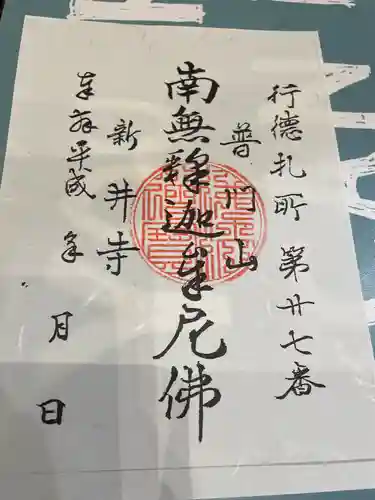 行徳札所第廿七番
普門山
南無釋迦牟尼佛
新井寺
奉拝平成　年
月
日